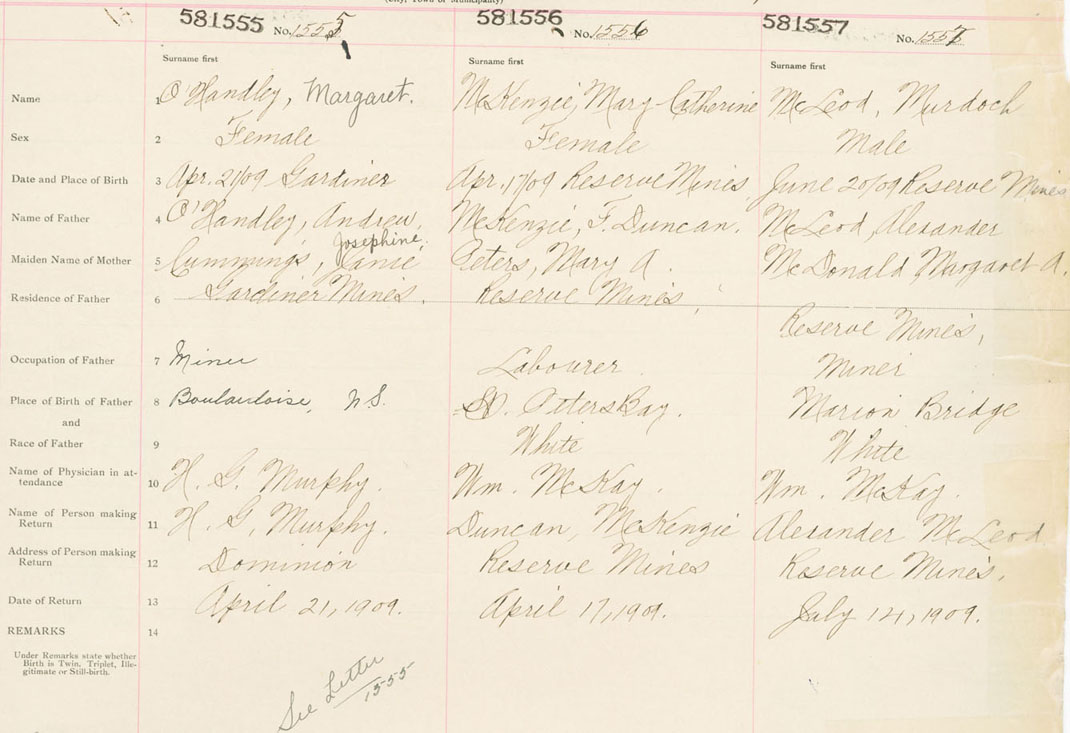 (City, Town or Municipality)
581555 No. 1555 581556 No. 1556 581557 No. 1557
Surname first Surname first Surname first
Name 1 O'Handley, Margaret. McKenzie, Mary Catherine McLeod, Murdoch
Sex 2 Female Female Male
Date and Place of Birth 3 Apr. 21/09 Gardiner Apr. 17/09 Reserve Mines June 20/09 Reserve Mines
Name of Father 4 O'Handley, Andrew. McKenzie, F. Duncan. McLeod, Alexander
Josephine,
Maiden Name of Mother 5 Cummings, Janie Peters, Mary A. McDonald, Margaret A.
Residence of Father 6 Gardiner Mines. Reserve Mines
Reserve Mines,
Occupation of Father 7 Miner Labourer Miner
Place of Birth of Father 8 N.S. Peters Bay. Marion Bridge
and
Race of Father 9 White White
Name of Physician in at-
tendance 10 H. G. Murphy. Wm. McKay. Wm. McKay.
Name of Person making
Return 11 H. G. Murphy. Duncan, McKenzie Alexander McLeod
Address of Person making
Return 12 Dominion Reserve Mines Reserve Mines.
Date of Return 13 April 21, 1909. April 17, 1909. July 14, 1909.
REMARKS 14
Under Remarks state whether
Birth is Twin, Triplet, Ille-
gitimate or Still-birth.
See Letter
1555